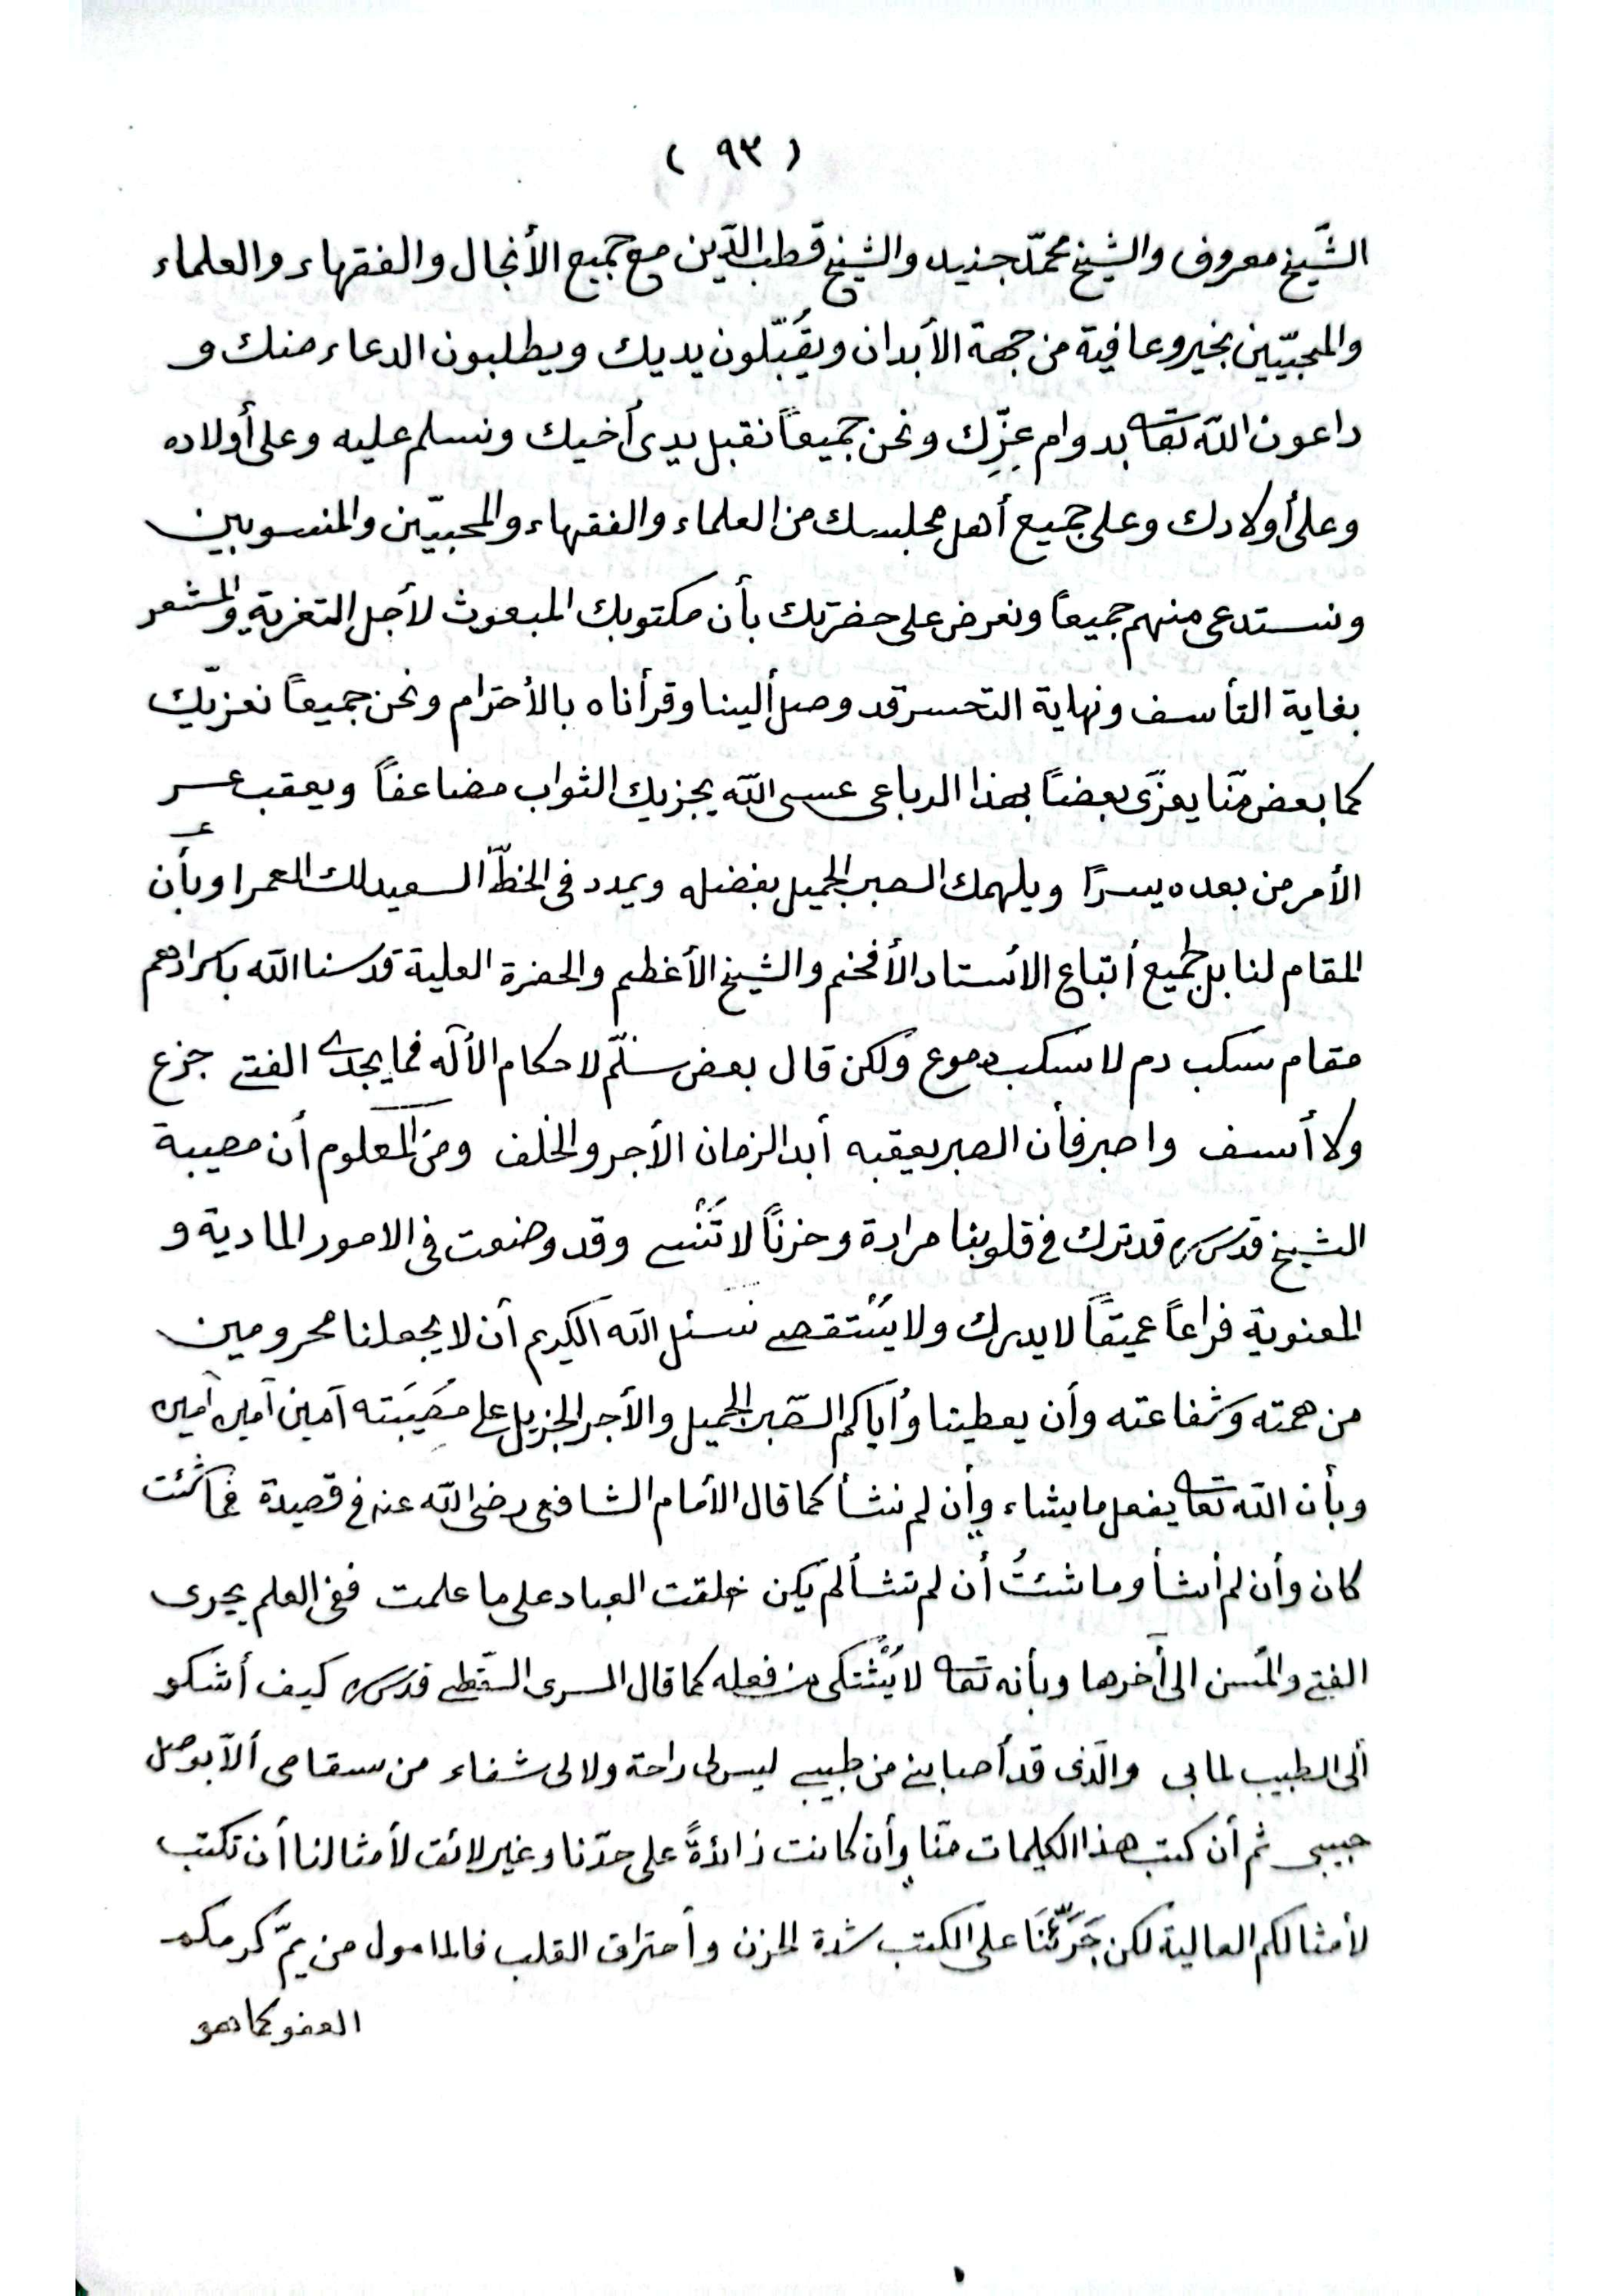 ( ٩٣ )
الشّيخ معروف والشيخ محمّد جنيد والشيخ قطب الدّين مع جميع الأنجال والفقهاء والعلماء
والمحبّين بخير وعافية من جهة الأبدان ويُقَبّلون يديك ويطلبون الدعاء منك و
داعون اللّه تعا بدوام عِزِّك ونحن جميعاً نقبل يدى أخيك ونسلم عليه وعلى أولاده
وعلى أولادك وعلى جميع أهل مجلسك من العلماء والفقهاء والمحبيّن والمنسوبين
ونستدعى منهم جميعاً ونعرض على حضرتك بأن مكتوبك المبعوث لأجل التعزية والمشعر
بغاية التأسف ونهاية التحسر قد وصل ألينا وقرأناه بالأحترام ونحن جميعاً نعزّيك
كما بعض منّا يعزّى بعضاً بهذا الرباعى عسى اللّه يجزيك الثواب مضاعفاً ويعقب عسر
الأمر من بعده يسرًا ويلهمك الصبر الجميل بفضله ويمدد فى الخطّ السعيد لك العمرا وبأن
المقام لنا بل لجميع أتباع الأستاد الأفخم والشيخ الأعظم والحضرة العلية قدسنا اللّه باسرارهم
مقام سَكب دم لا سَكب دموع ولكن قال بعض سلّم لاحكام الأله فما يجدى الفتى جزع
ولا أسف واصبر فأن الصبر يعقبه أبد الزمان الأجر والخلف ومن المعلوم أن مصيبة
الشيخ قدس سره قد ترك فى قلوبنا مرارة وحزناً لا تُنْسى وقد وضعت فى الامور المادية و
المعنوية فراعاً عميقاً لا يدرك ولا يُسْتقصى نسئل اللّه الكريم أن لا يجعلنا محرومين
من همته وشفاعته وأن يعطينا وأياكم الصّبر الجميل والأجر الجزيل على مُصِيبَته آمين آمين آمين
وبأن اللّه تعا يفعل ما يشاء وإن لم نشأ كما قال الأمام الشافعى رضى اللّه عنه فى قصيدة فما شئت
كان وأن لم أشأ وما شئتُ أن لم تشأ لم يكن خلقت العباد على ما علمت ففى العلم يجرى
الفتى والمسن الى آخرها وبأنه تعا لا يُشْتكى من فعله كما قال السرى السّقطى قدس سره كيف أشكو
ألى الطبيب لما بى والّذى قد أصابنى من طبيبى ليس لى راحة ولا لى شفاء من سقامى ألاّ بوصل
حبيبى ثم أن كتب هذا الكلمات منّا وأن كانت زائدةً على حدّنا وغير لائق لأمثالنا أن تكتب
لأمثالكم العالية لكن جَرَّئَنَا على الكتب شدة الحزن وأحتراق القلب فالمامول من يمّ كرمكم
العفو كما هو